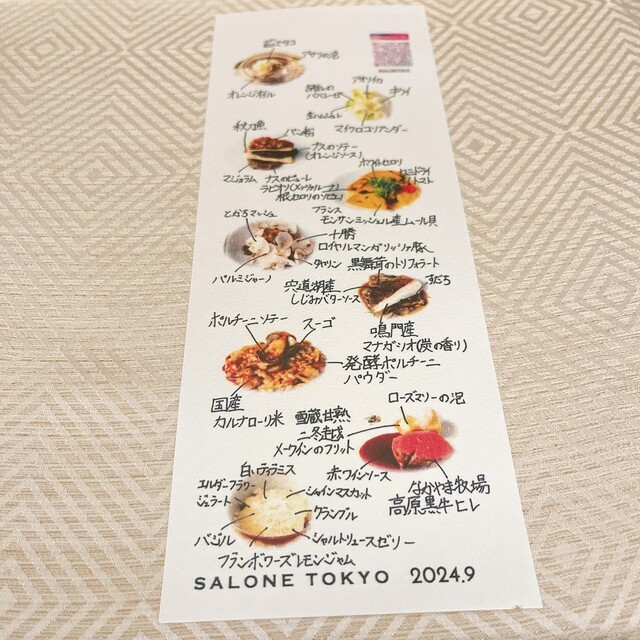 アサリの泡
オレンジオイル
アオリイカ
キウイ
マイクロコリアンダー
秋刀魚
パン粉
ナスのソテー
(オレンジソース)
マジョラム
ナスのピューレ
ホワイトセロリ
セミドライ
トマト
根セロリのソピエ
フランス
モンサンミッシェル産ムール貝
とかちマッシュ
十勝
ロイヤルマンガリッツァ豚
タヤリン
黒舞茸のトリフォラート
パルミジャーノ
宍道湖産
しじみバターソース
すだち
鳴門産
マナガツオ(炭の香り)
ポルチーニソテー
スーゴ
発酵ポルチーニ
パウダー
国産
カルナローリ米
ローズマリーの泡
雪蔵甘熟
二冬越し
メークインのフリット
白いティラミス
赤ワインソース
エルダーフラワー
ジェラート
シャインマスカット
クランブル
なかやま牧場
高原黒牛ヒレ
バジル
シャルトリューズゼリー
フランボワーズレモンジャム
SALONE TOKYO 2024.9